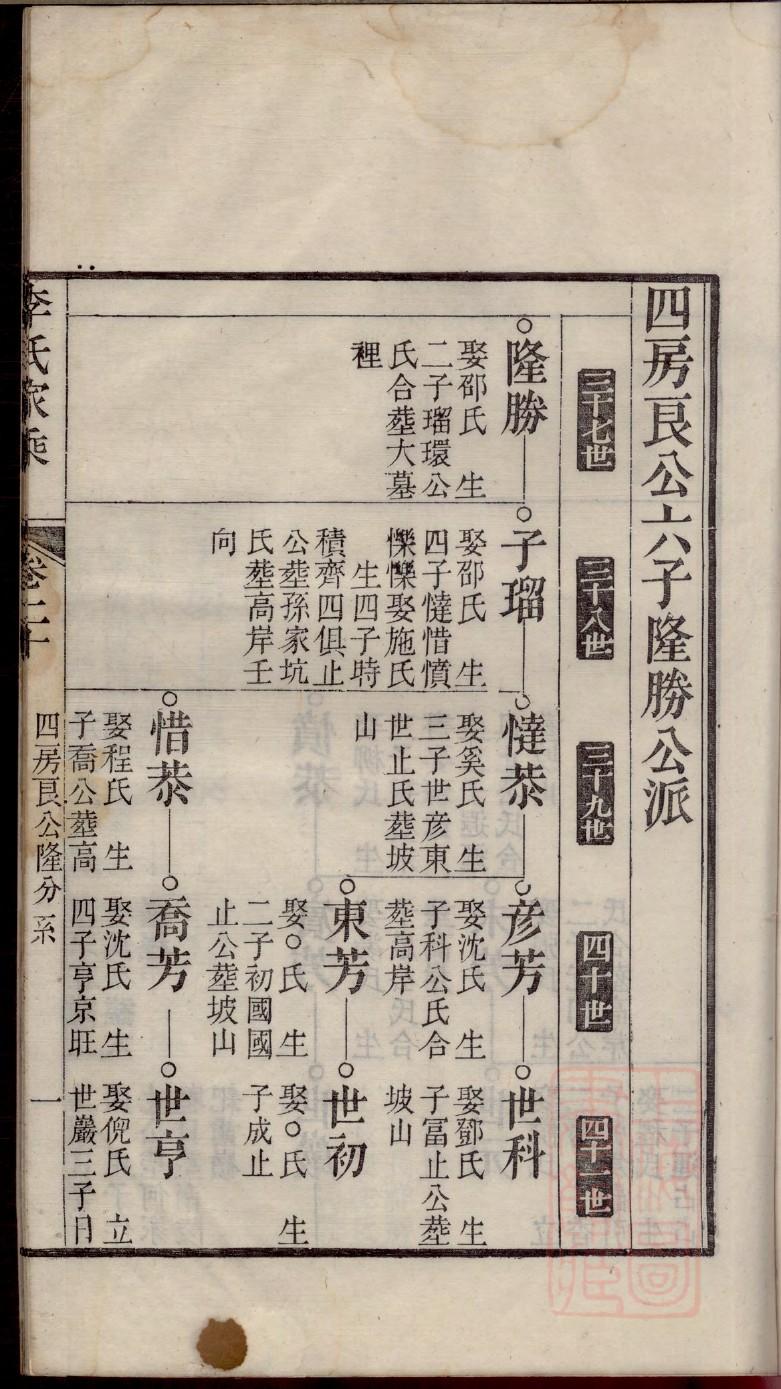 四房艮公六子隆勝公派
三十七世
三十八世
三十九世
四十世
四十一世
隆勝
娶邵氏 生
二子瑠環公
氏合塟大墓
裡
子瑠
娶邵氏 生
四子㒓惜憤
慄慄娶施氏
生四子時
積齊四俱止
公塟孫家坑
氏塟高岸壬
向
㒓恭
娶奚氏 生
三子世彦東
世止氏塟坡
山
彦芳
娶沈氏 生
子科公氏合
塟高岸
世科
娶鄧氏 生
子冨止公塟
坡山
東芳
娶○氏 生
二子初國國
止公塟坡山
世初
娶○氏 生
子成止
惜恭
娶程氏 生
子喬公塟高
喬芳
娶沈氏 生
四子亨京旺
世亨
娶倪氏 立
世巖三子日
李氏家乘
卷二十
四房艮公隆分系
一